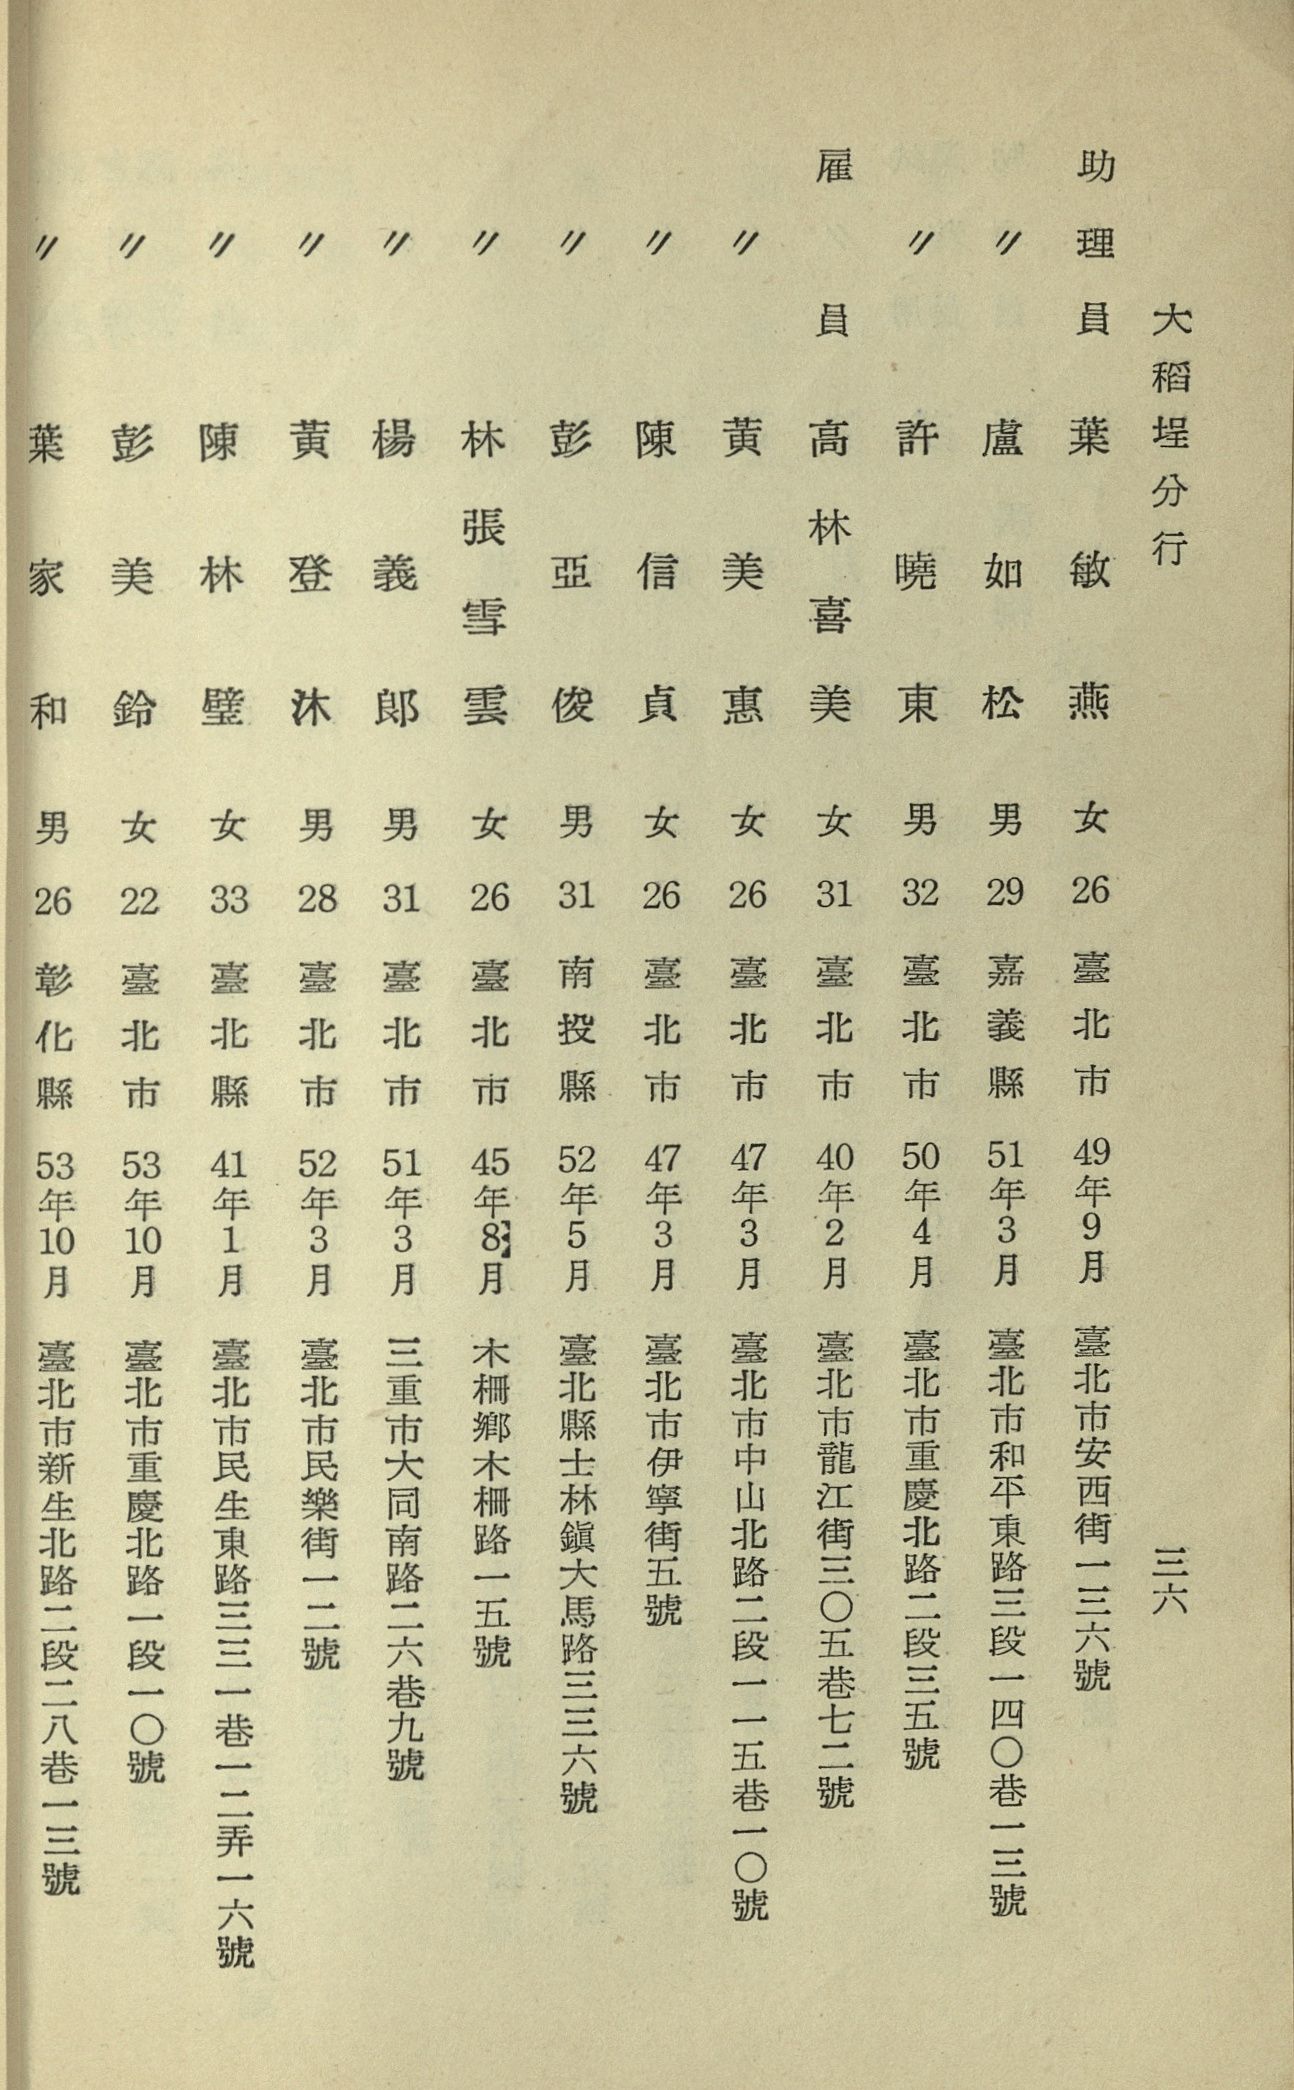 大稻埕分行　三六
助理員　葉敏燕　女　26　臺北市　49年9月　臺北市安西街一三六號
〃　盧如松　男　29　嘉義縣　51年3月　臺北市和平東路三段一四〇巷一三號
〃　許曉東　男　32　臺北市　50年4月　臺北市重慶北路二段三五號
雇員　高林喜美　女　31　臺北市　40年2月　臺北市龍江街三〇五巷七二號
〃　黃美惠　女　26　臺北市　47年3月　臺北市中山北路二段一一五巷一〇號
〃　陳信貞　女　26　臺北市　47年3月　臺北市伊寧街五號
〃　彭亞俊　男　31　南投縣　52年5月　臺北縣士林鎭大馬路三三六號
〃　林張雪雲　女　26　臺北市　45年8月　木柵鄉木柵路一五號
〃　楊義郎　男　31　臺北市　51年3月　三重市大同南路二六巷九號
〃　黃登沐　男　28　臺北市　52年3月　臺北市民樂街一二號
〃　陳林璧　女　33　臺北縣　41年1月　臺北市民生東路三三一巷一二弄一六號
〃　彭美鈴　女　22　臺北市　53年10月　臺北市重慶北路一段一〇號
〃　葉家和　男　26　彰化縣　53年10月　臺北市新生北路二段二八巷一三號